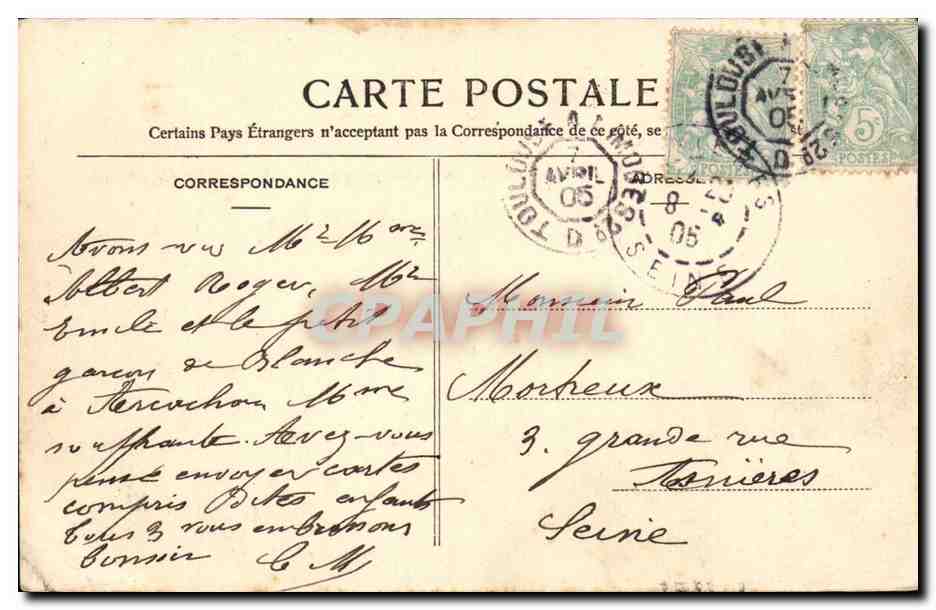 CARTE POSTALE
Certains Pays Étrangers n'acceptent pas la Correspondance de ce côté, se
CORRESPONDANCE
Avons vus Mr Mme
Albert Roger, Mr
Emile et le petit
garçon de Blanche
à Arcachon Mme
souffrante. Avez-vous
pensé envoyer cartes
compris Dites enfants
tous 3 vous embrassons
bonsoir C M
ADRESSE
Monsieur Paul
Mortreux
3. grande rue
Asnières
Seine
TOULOUSE A LIMOGES 2º D
7
AVRIL
05
TOULOUSE
7
AVRIL
05
2º D
8
05
SEINE
5c
POSTES
POSTES
CPAPHIL